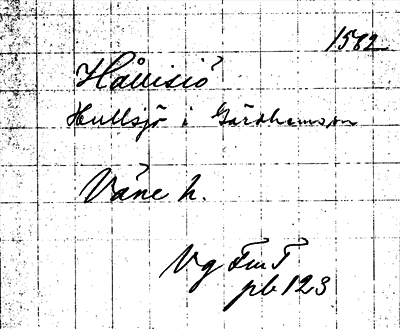 1582
Hållisiö
Hullsjö i Gärdhems sn
Väne h.
Vg FmT
pb 123